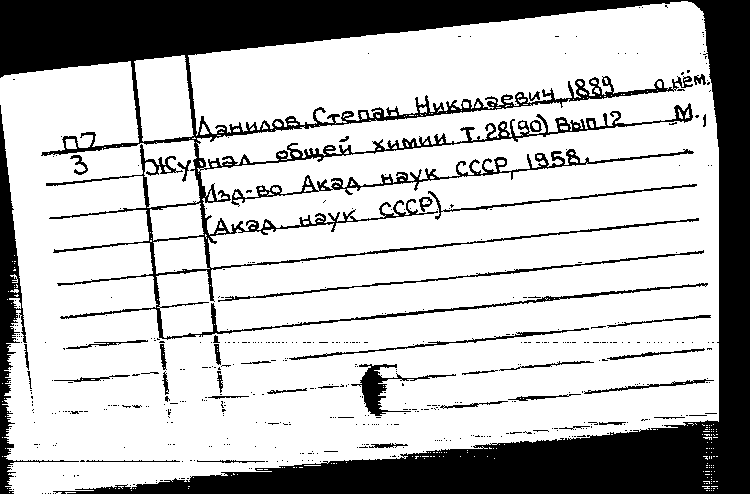 Данилов, Степан Николаевич, 1889 о нём.
П7
3
Журнал общей химии. Т. 28(90) Вып 12 М.,
Изд-во Акад наук СССР, 1958.
(Акад наук СССР).